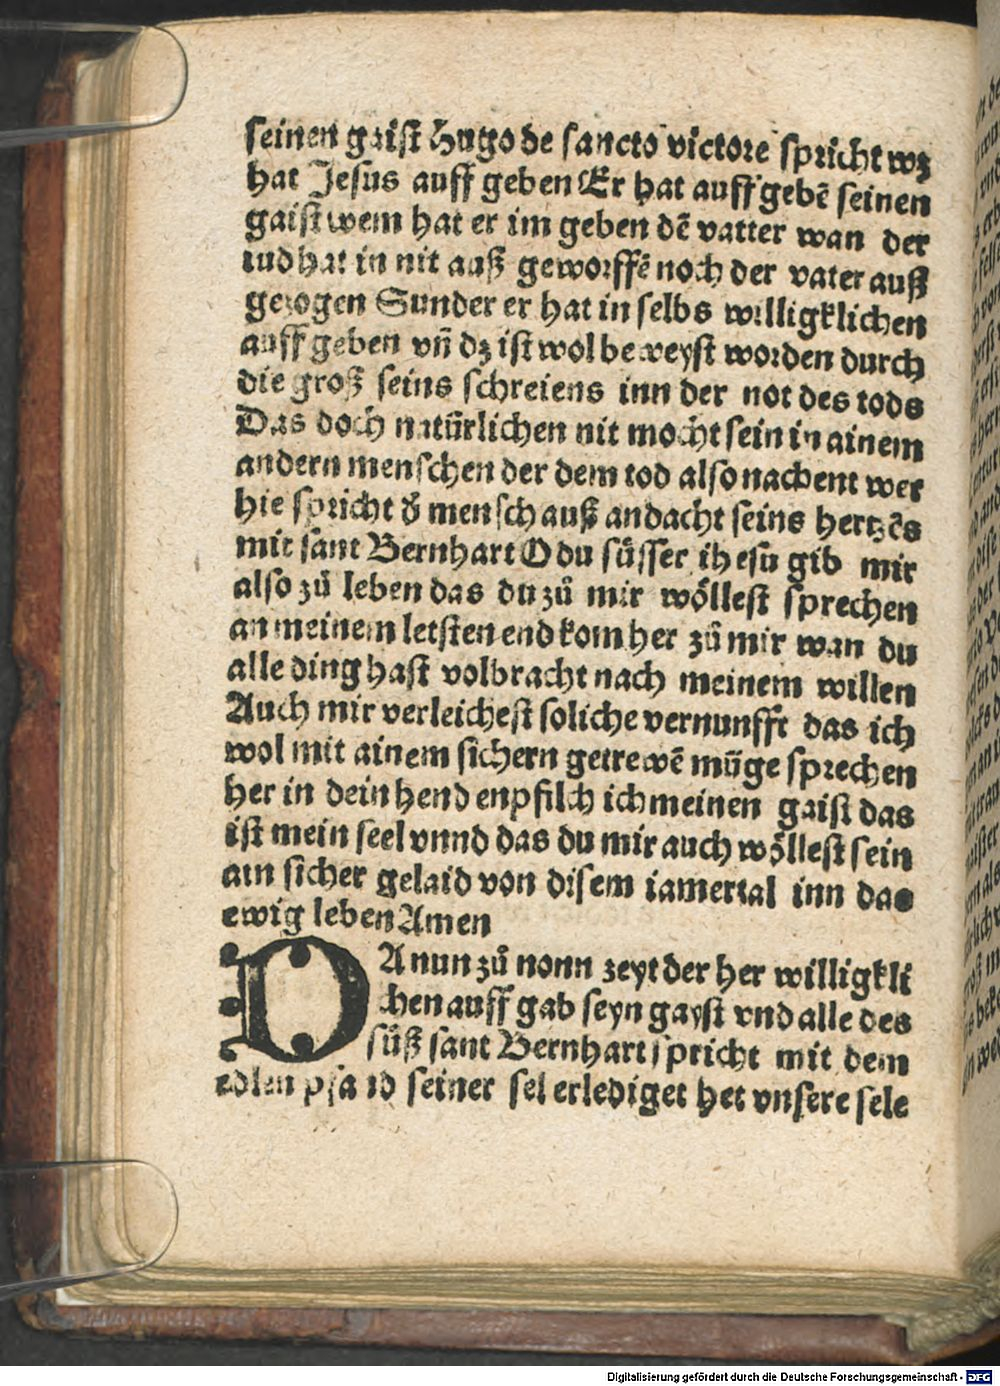 seinen gaist Hugo de sancto victore spricht wz
hat Jesus auff geben Er hat auff gebē seinen
gaist wem hat er im geben dē vatter wan der
iud hat in nit auß geworffē noch der vater auß
gezogen Sunder er hat in selbs willigklichen
auff geben vn̄ dz ist wol beweyst worden durch
die groß seins schreiens inn der not des tods
Das doch natürlichen nit mocht sein in ainem
andern menschen der dem tod also nachent wer
hie spricht d̄ mensch auß andacht seins hertzēs
mit sant Bernhart O du süsser ihesu gib mir
also zů leben das du zů mir wöllest sprechen
an meinem letsten end kom her zů mir wan du
alle ding hast volbracht nach meinem willen
Auch mir verleichest soliche vernunfft das ich
wol mit ainem sichern getrewē müge sprechen
her in dein hend enpfilch ich meinen gaist das
ist mein seel vnnd das du mir auch wöllest sein
ain sicher gelaid von disem iamertal inn das
ewig leben Amen
DA nun zů nonn zeyt der her willigkli
chen auff gab seyn gayst vnd alle des
süß sant Bernhart spricht mit dem
edlen pfand seiner sel erlediget het vnsere sele
Digitalisierung gefördert durch die Deutsche Forschungsgemeinschaft - DFG